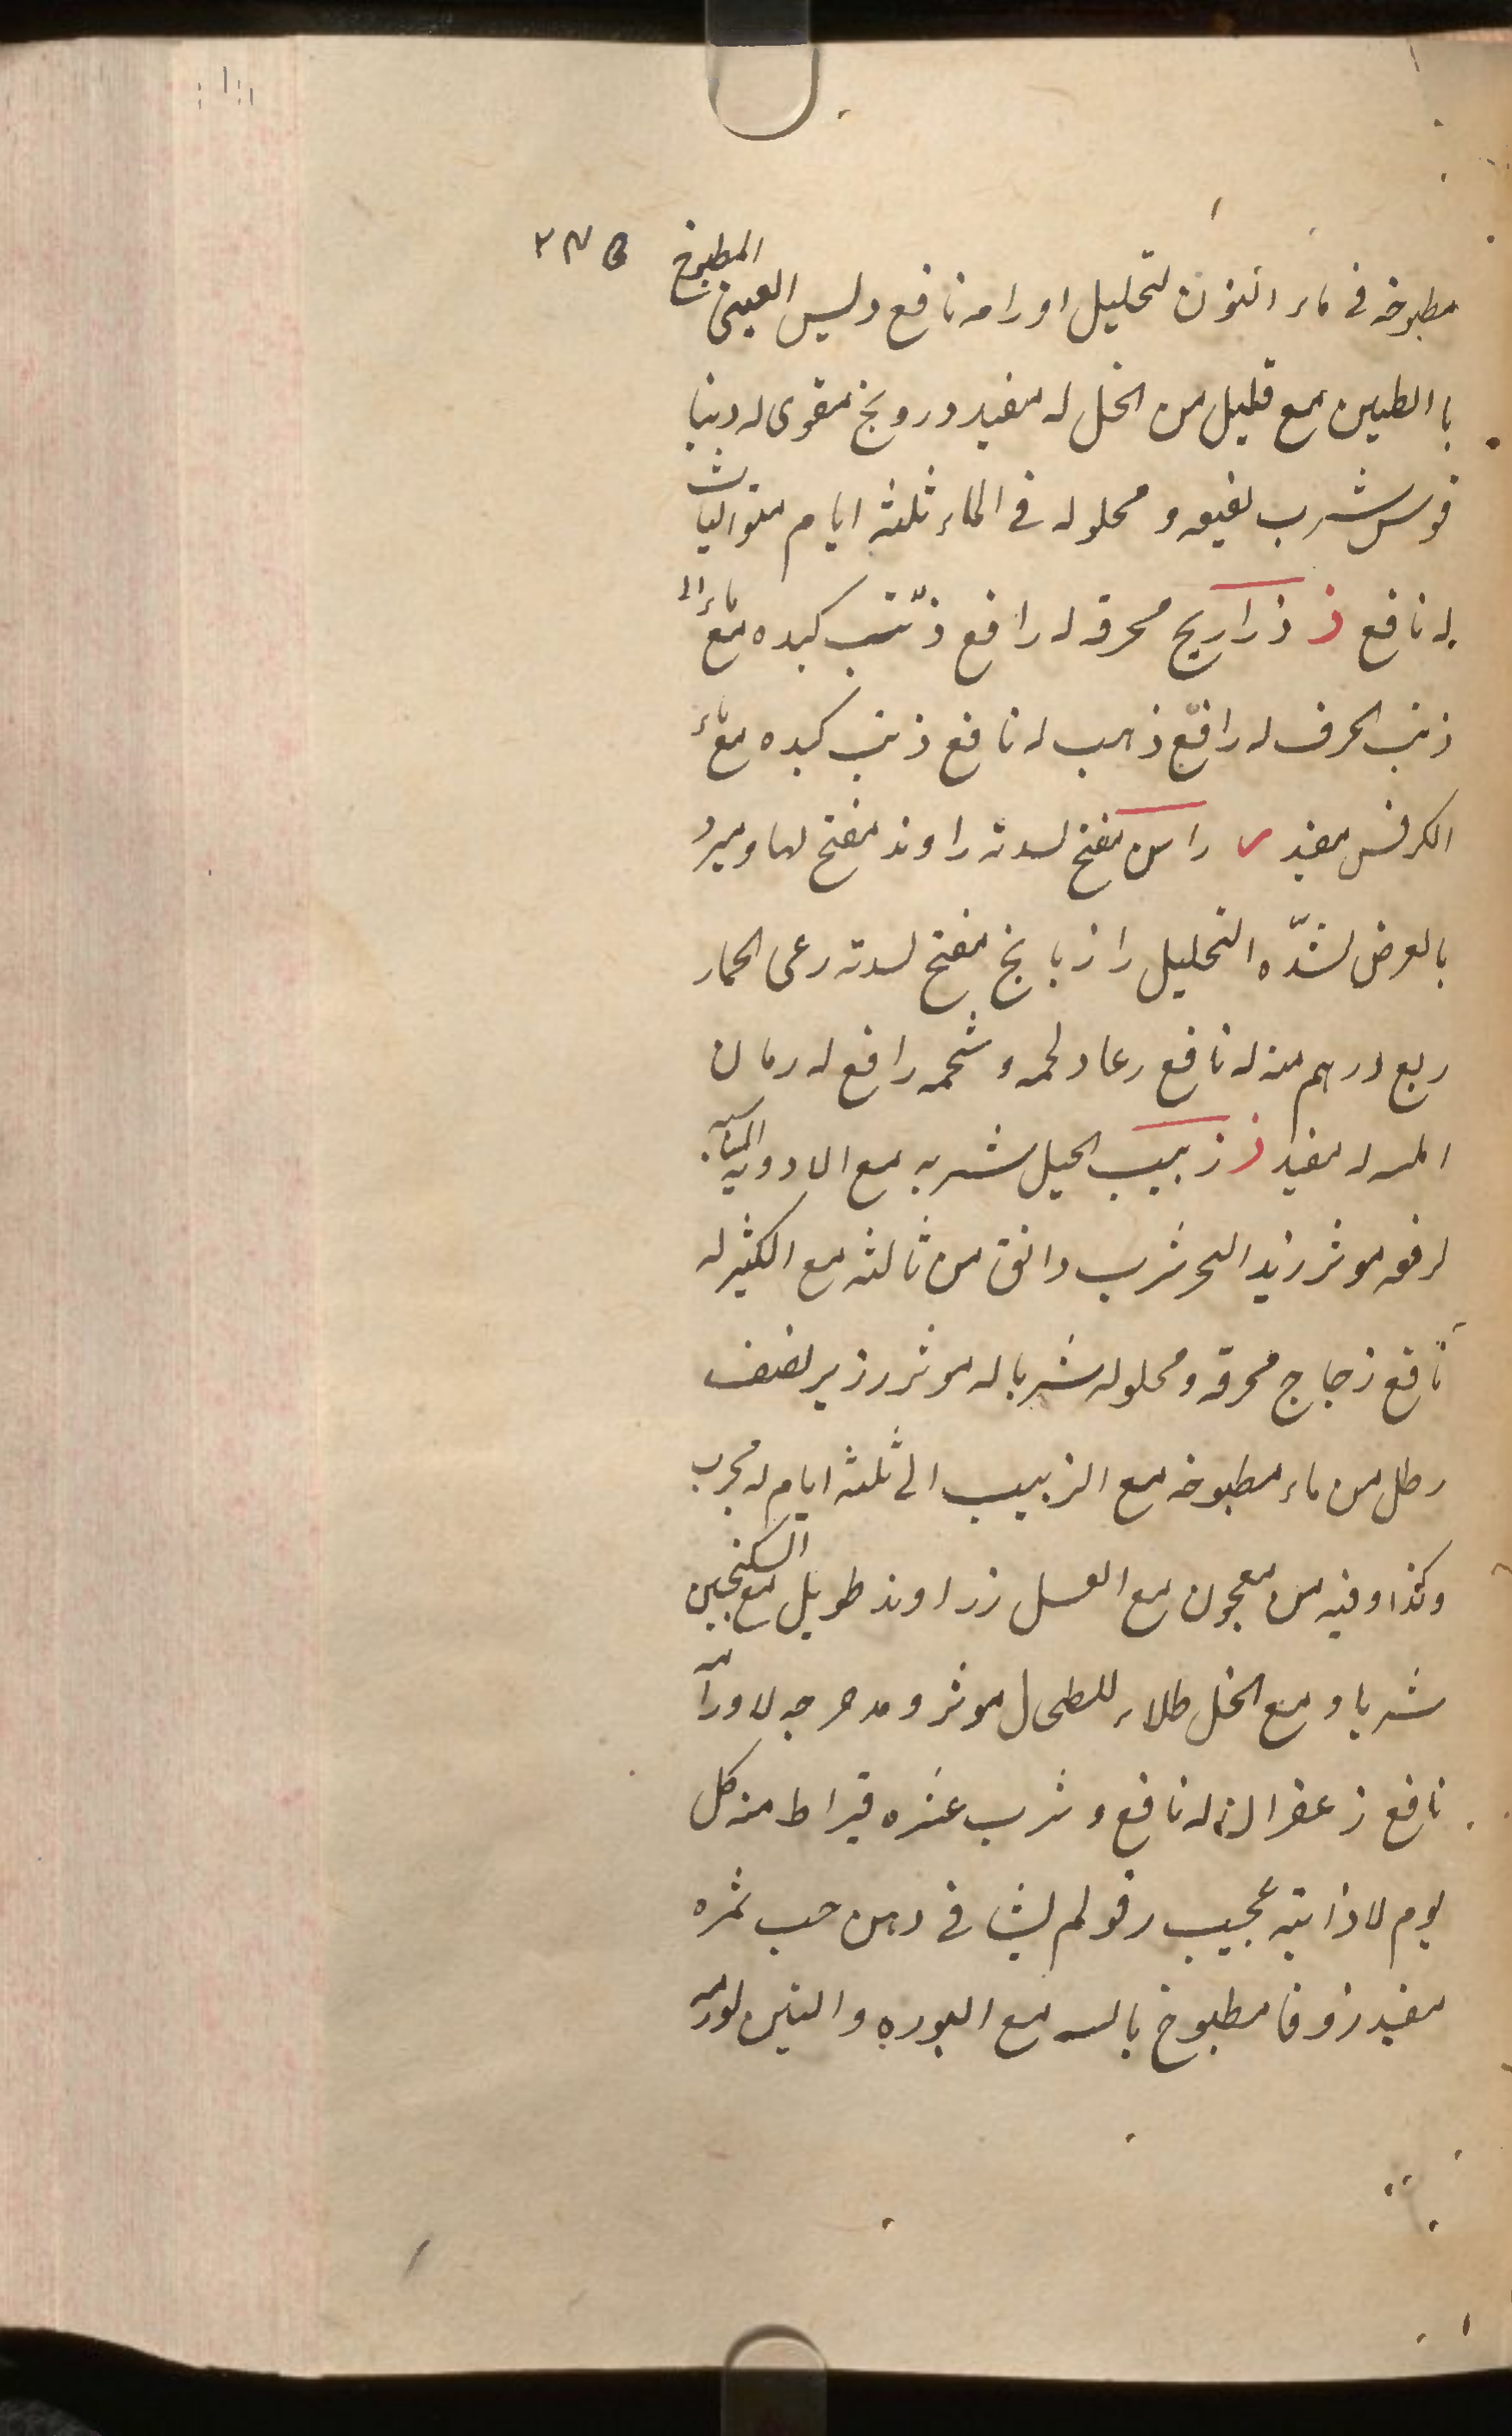 مطبوخه فى ماء اتنون لتحليل اورامه نافع وليس العينى المطبوخ
با الطين مع قليل من الخل له مفيد درونج مقوى له دينا
قوس شرب نقيعه و محلوله فى الماء ثلثه ايام متواليات
له نافع ذ ذراريح محرقه له رافع ذئب كبده مع ماء ال
ذنب الحرف له رافع ذهب له نافع ذئب كبده مع ماء
الكرفس مفيد ر راسن مفتح لسدته راوند مفتح لها و مبرد
بالعرض لشدّه التحليل رازيانج مفتح لسدته رعى الحمار
ربع درهم منه له نافع رعاد لحمه و شحمه رافع له رمان
المر له مفيد ز زبيب الجبل شربه مع الادويه المناسبه
لرفعه موثر زبد البحر شرب دانق من ثالثه مع الكثير له
نافع زجاج محرقه و محلوله شربا له موثر رزير نصف
رطل من ماء مطبوخه مع الزبيب الى ثلثه ايام له مجرب
وكذا وقيه من معجون مع العسل زراوند طويل مع السكنجبين
شربا و مع الخل طلاء للطحال موثر و مدحرجه لاورامه
نافع زعفران له نافع و شرب عشره قيراط منه كل
يوم لاذابته عجيب زقولم لينا فى دهن حب ثمره
مفيد زوفا مطبوخ باله مع البوره والتين لورمه